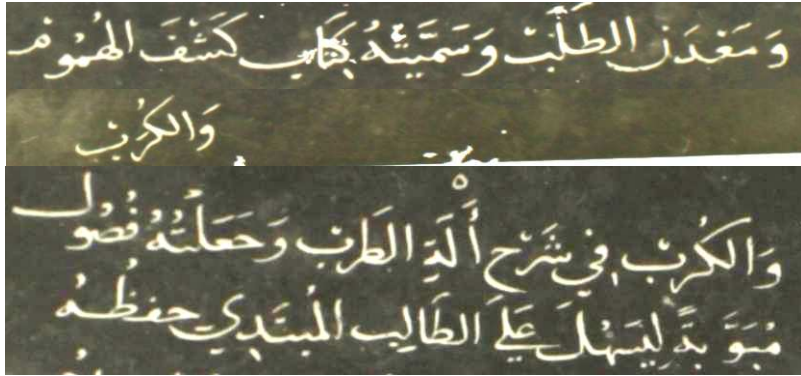 وَمَعْدَنِ الطَلَبِ وَسَمَّيْتُهُ كِتَابِ كَشْفَ الهُمُومْ
وَالكُرَبْ
وَالكُرَبْ فِي شَرْحِ أَلَةِ الطَرَبْ وَجَعَلْتُهُ فُصُول
مُبَوَّبَةً لِيَسْهُلَ عَلَى الطَالِبِ المُبْتَدِي حِفْظُهُ